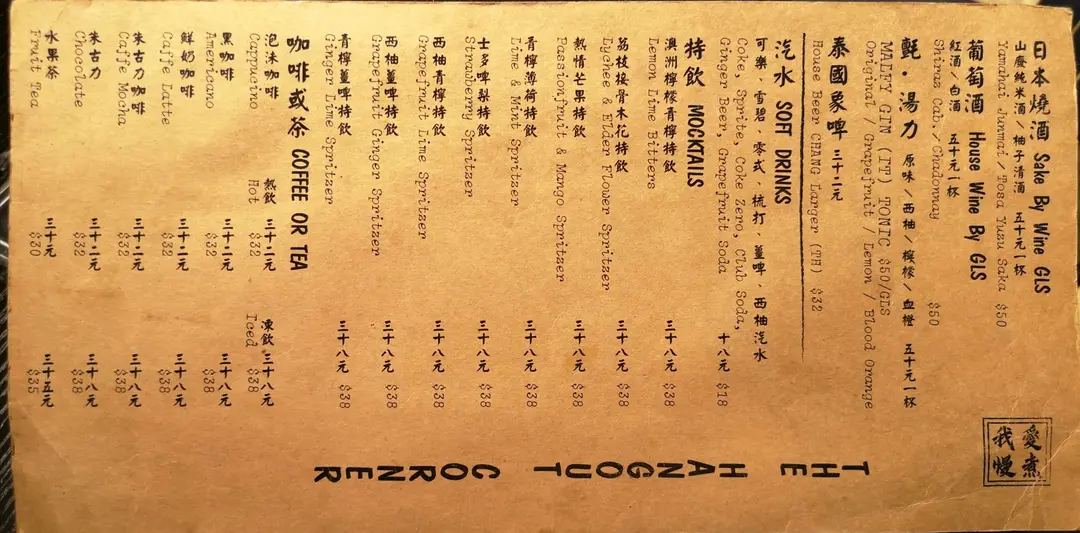 日本燒酒 Sake By Wine GLS
山廢純米酒/柚子清酒 五十元一杯
Yamahai Junmai/Tosa Yuzu Saka $50
葡萄酒 House Wine By GLS
紅酒/白酒 五十元一杯
Shiraz Cab./Chadonnay $50
氈·湯力 原味/西柚/檸檬/血橙 五十元一杯
MALFY GIN (IT) TONIC $50/GLS
Original / Grapefruit / Lemon / Blood Orange
泰國象啤 三十二元
House Beer CHANG Larger (TH) $32
汽水 SOFT DRINKS
可樂，雪碧，零式，梳打，薑啤，西柚汽水
Coke, Sprite, Coke Zero, Club Soda,
Ginger Beer, Grapefruit Soda
十八元 $18
特飲 MOCKTAILS
澳洲檸檬青檸特飲 三十八元
Lemon Lime Bitters $38
荔枝接骨木花特飲 三十八元
Lychee & Elder Flower Spritzer $38
熱情芒果特飲 三十八元
Passionfruit & Mango Spritzer $38
青檸薄荷特飲 三十八元
Lime & Mint Spritzer $38
士多啤梨特飲 三十八元
Strawberry Spritzer $38
西柚青檸特飲 三十八元
Grapefruit Lime Spritzer $38
西柚薑啤特飲 三十八元
Grapefruit Ginger Spritzer $38
青檸薑啤特飲 三十八元
Ginger Lime Spritzer $38
咖啡或茶 COFFEE OR TEA
熱飲 凍飲
Hot Iced
泡沫咖啡 三十二元 三十八元
Cappucino $32 $38
黑咖啡 三十二元 三十八元
Americano $32 $38
鮮奶咖啡 三十二元 三十八元
Caffe Latte $32 $38
朱古力咖啡 三十二元 三十八元
Caffe Mocha $32 $38
朱古力 三十二元 三十八元
Chocolate $32 $38
水果茶 三十元 三十五元
Fruit Tea $30 $35
愛煮
我慢
THE HANGOUT CORNER